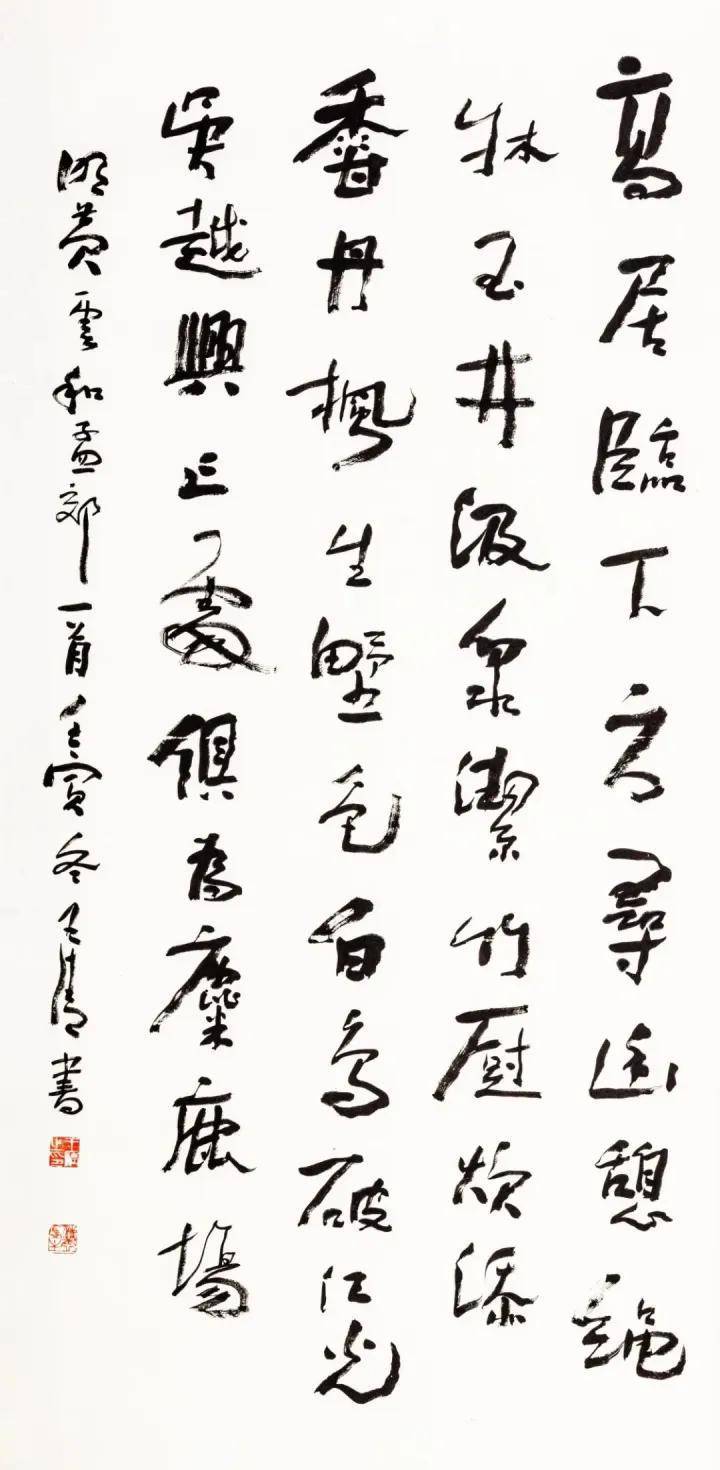 高居臨下方尋幽憩繩
牀玉井汲泉潔竹厨添
香丹楓生野色白鳥破江光
吳越興亡處俱為麋鹿場
黄雲和孟郊一首壬寅冬書